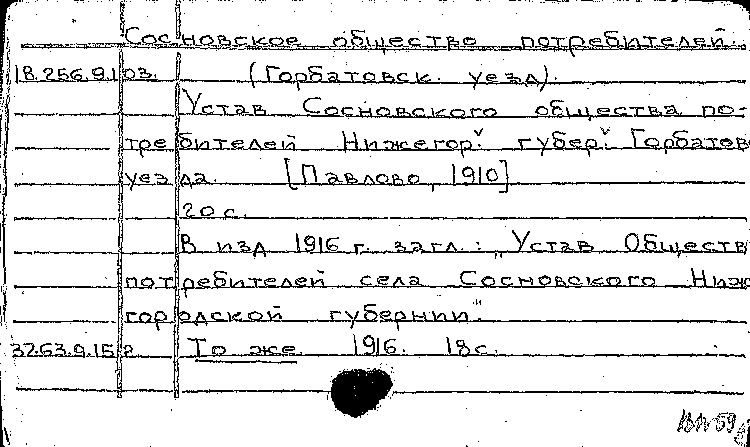 Сосновское общество потребителей.
18.256.9.103. (Горбатовск. уезд).
Устав Сосновского общества по-
требителей Нижегор. губер. Горбатов
уезда. [Павлово, 1910]
20 с.
В изд 1916 г. загл.: „Устав Обществ
потребителей села Сосновского Ниж
городской губернии."
37.63.9.152 То же 1916. 18 с.